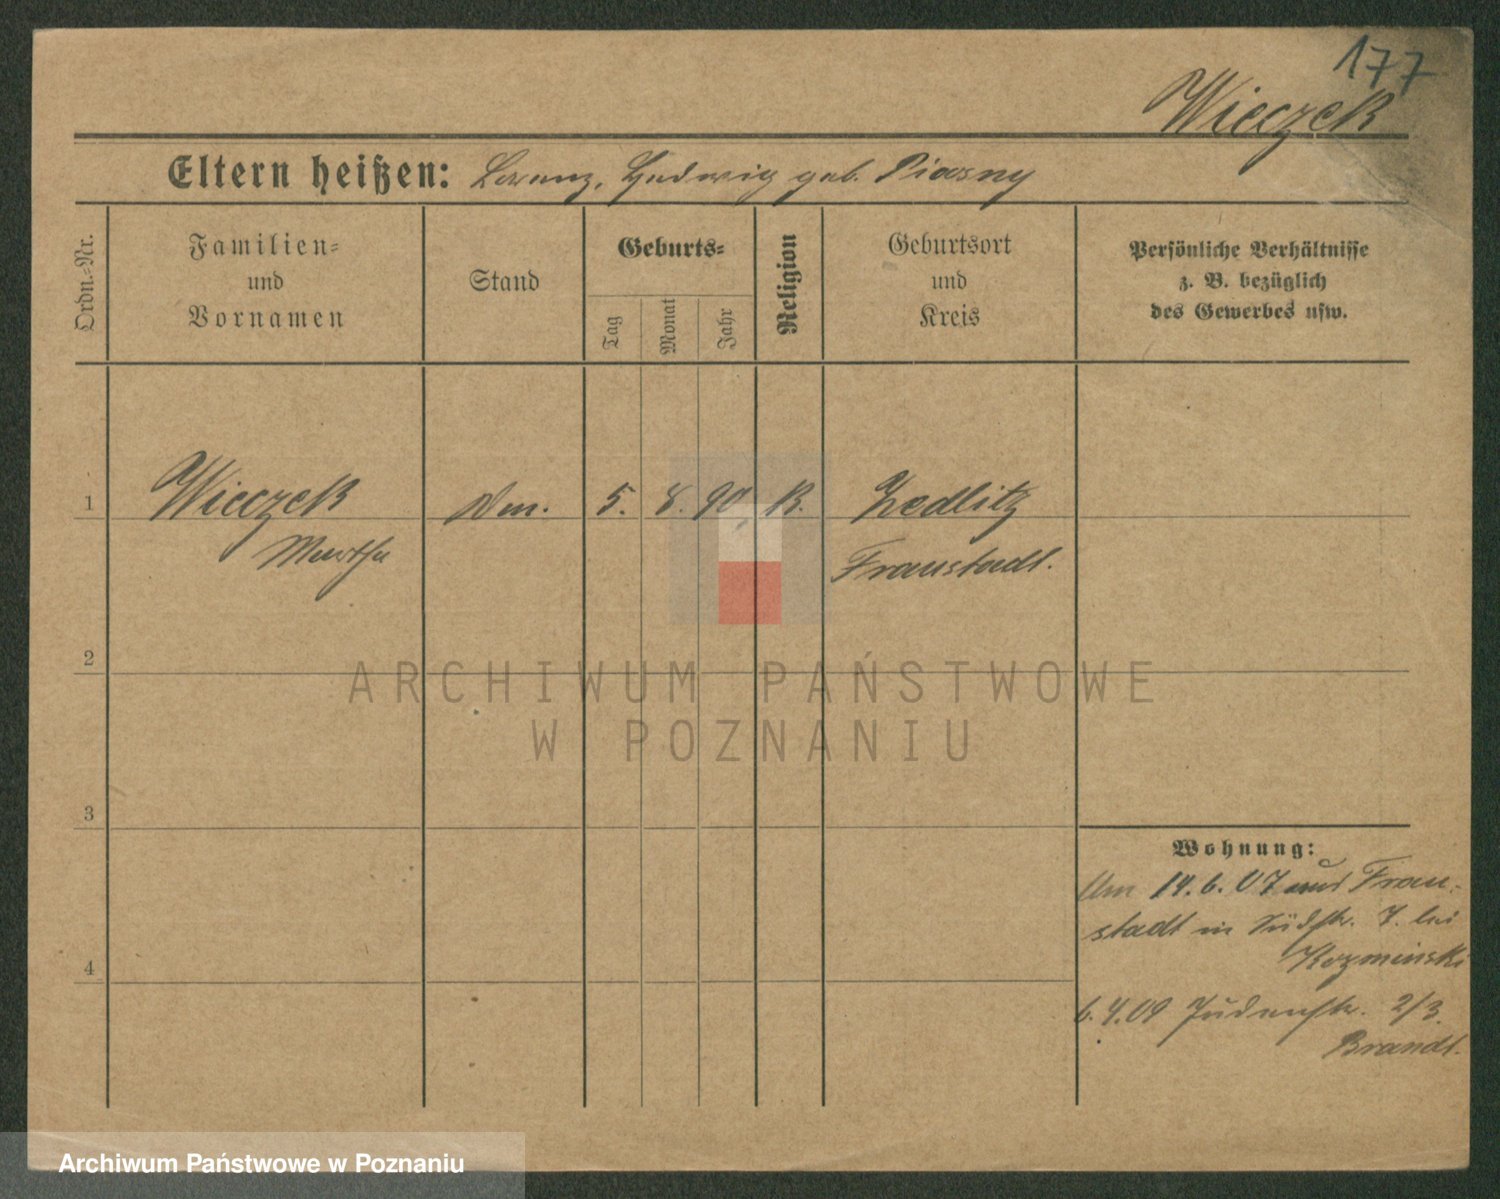 177
Wieczek
Eltern heißen: Lorenz, Hedwig geb. Piasny
Ordn.-Nr.
Familien-
und
Vornamen
Stand
Geburts-
Tag
Monat
Jahr
Religion
Geburtsort
und
Kreis
Persönliche Verhältnisse
z. B. bezüglich
des Gewerbes usw.
1
Wieczek
Martha
5. 8. 90, K.
Zedlitz
Fraustadt.
2
3
4
Wohnung:
Am 14.6.07 aus Frau-
stadt in Südstr. 7. bei
Kozminski
6.4.09 Judenstr. 2/3.
Brandt.
ARCHIWUM PAŃSTWOWE
W POZNANIU
Archiwum Państwowe w Poznaniu